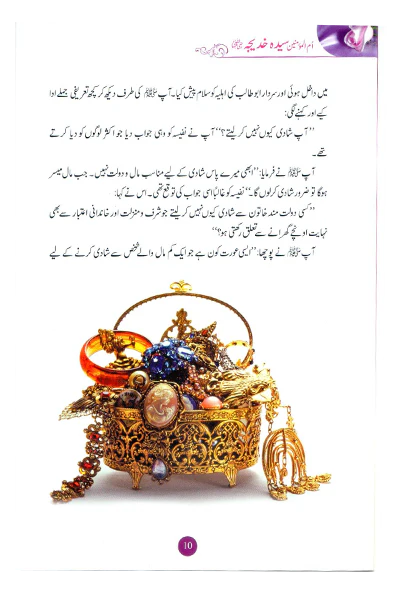 اُم المؤمنین سیدہ خدیجہ
میں داخل ہوئی اور سردار ابوطالب کی اہلیہ کو سلام پیش کیا۔ آپ ﷺ کی طرف دیکھ کر کچھ تعریفی جملے ادا
کیے اور کہنے لگی:
’’آپ شادی کیوں نہیں کر لیتے؟‘‘ آپ نے نفیسہ کو وہی جواب دیا جو اکثر لوگوں کو دیا کرتے
تھے۔
آپ ﷺ نے فرمایا: ’’ابھی میرے پاس شادی کے لیے مناسب مال و دولت نہیں۔ جب مال میسر
ہوگا تو ضرور شادی کر لوں گا۔‘‘ نفیسہ کو غالباً اسی جواب کی توقع تھی۔ اس نے کہا:
’’کسی دولت مند خاتون سے شادی کیوں نہیں کر لیتے جو شرف و منزلت اور خاندانی اعتبار سے بھی
نہایت اونچے گھرانے سے تعلق رکھتی ہو؟‘‘
آپ ﷺ نے پوچھا: ’’ایسی عورت کون ہے جو ایک کم مال والے شخص سے شادی کرنے کے لیے
10